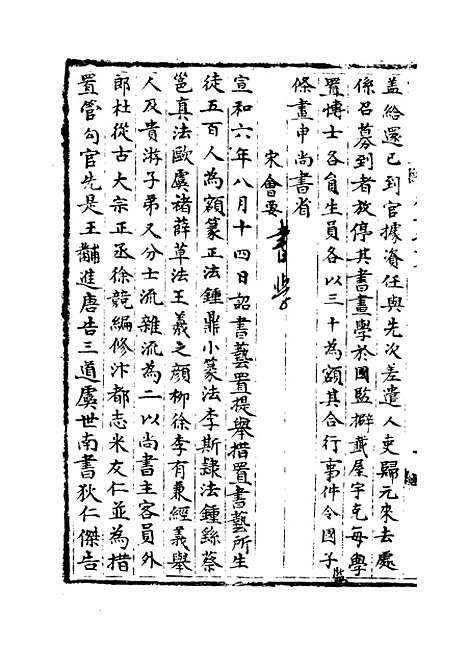 蓋給還已到官據資任與先次差遣人吏歸元來去處
係召募到者放停其書畫學於國監擗截屋宇充每學
置博士各員生員各以三十為額其合行事件令國子監
條畫申尚書省
宋會要 書學
宣和六年八月十四日詔書藝置提舉措置書藝所生
徒五百人為額篆正法鍾鼎小篆法李斯隸法鍾繇蔡
邕真法歐虞褚薛草法王羲之顔柳徐李有兼經義舉
人及貴游子弟又分士流雜流為二以尚書主客員外
郎杜從古大宗正丞徐競編修汴都志米友仁並為措
置管勾官先是王黼進唐告三道虞世南書狄仁傑告